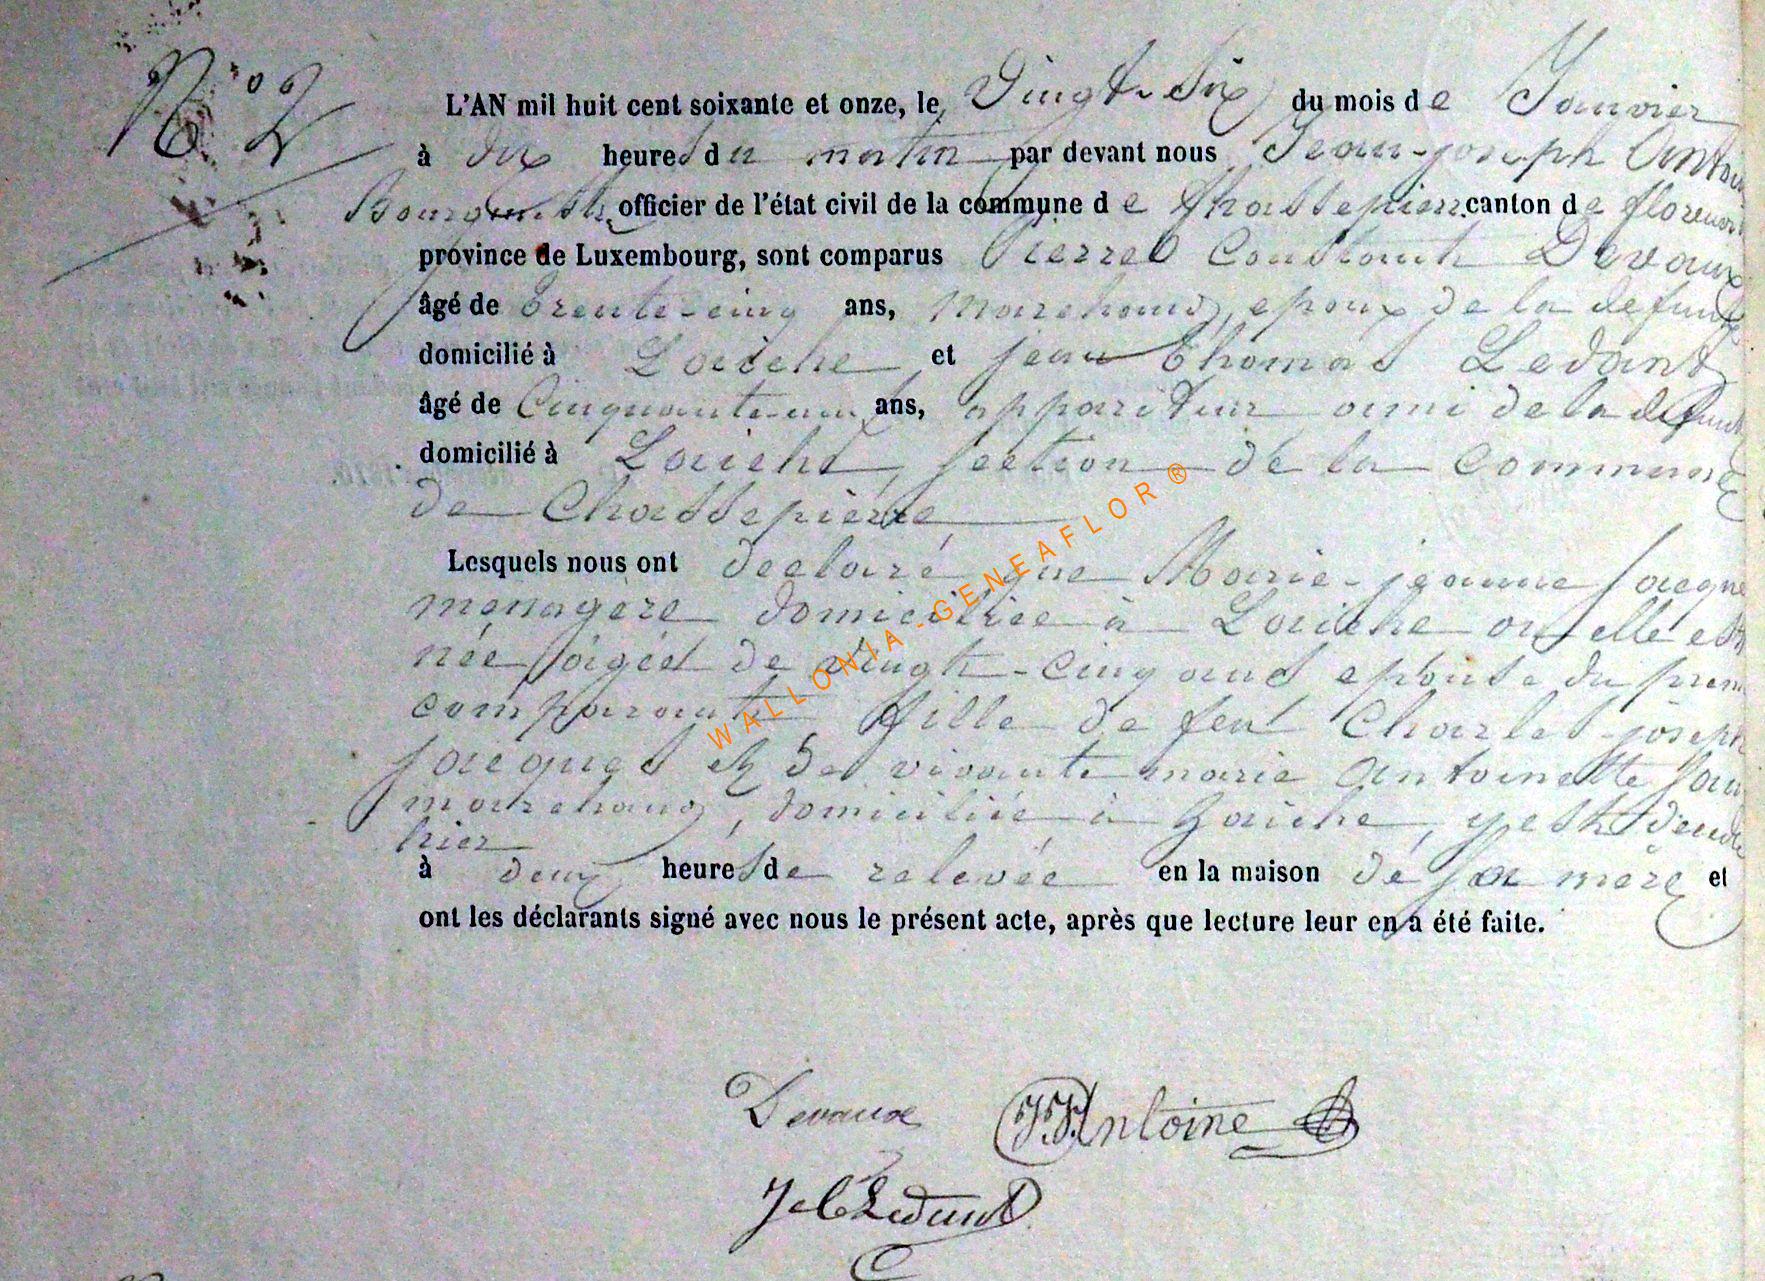 N° 2
L'AN mil huit cent soixante et onze, le Vingt-Six du mois de Janvier
à dix heures du matin par devant nous Jean-joseph Antoine
Bourgmestre officier de l'état civil de la commune de Chassepierre canton de florenville
province de Luxembourg, sont comparus Pierre Constant Devaux
âgé de trente-cinq ans, marchand, epoux de la defunte
domicilié à Laiche et jean thomas Ledant
âgé de Cinquante-un ans, appariteur ami de la defunte
domicilié à Laiche, section de la Commune
de Chassepierre
Lesquels nous ont declaré que Marie-jeanne Jacques
menagere domiciliée à Laiche où elle est
née âgée de vingt-cinq ans epouse du premier
comparant fille de feu Charles-joseph
Jacques et de vivante marie antoinette
marchand, domiciliée à Laiche, y est décédée
hier
à deux heures de relevée en la maison de sa mère et
ont les déclarants signé avec nous le présent acte, après que lecture leur en a été faite.
Devaux J.J. Antoine
J Ledant
WALLONIA-GENEAFLOR®